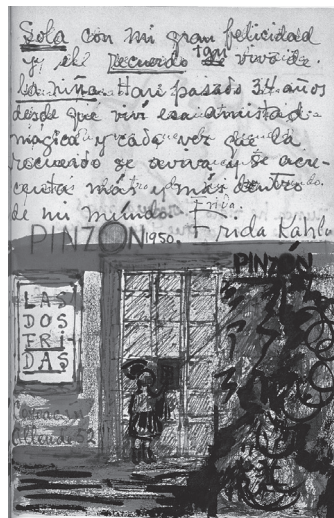 Sola con mi gran felicidad
y el recuerdo tan vivo de
la niña. Han pasado 34 años
desde que viví esa amistad
mágica y cada vez que la
recuerdo se aviva y se acre-
centa más y más dentro
de mi mundo. Frida.
PINZÓN 1950. Frida Kahlo
PINZÓN
LAS
DOS
FRI
DAS
Coyoacán
Allende 52